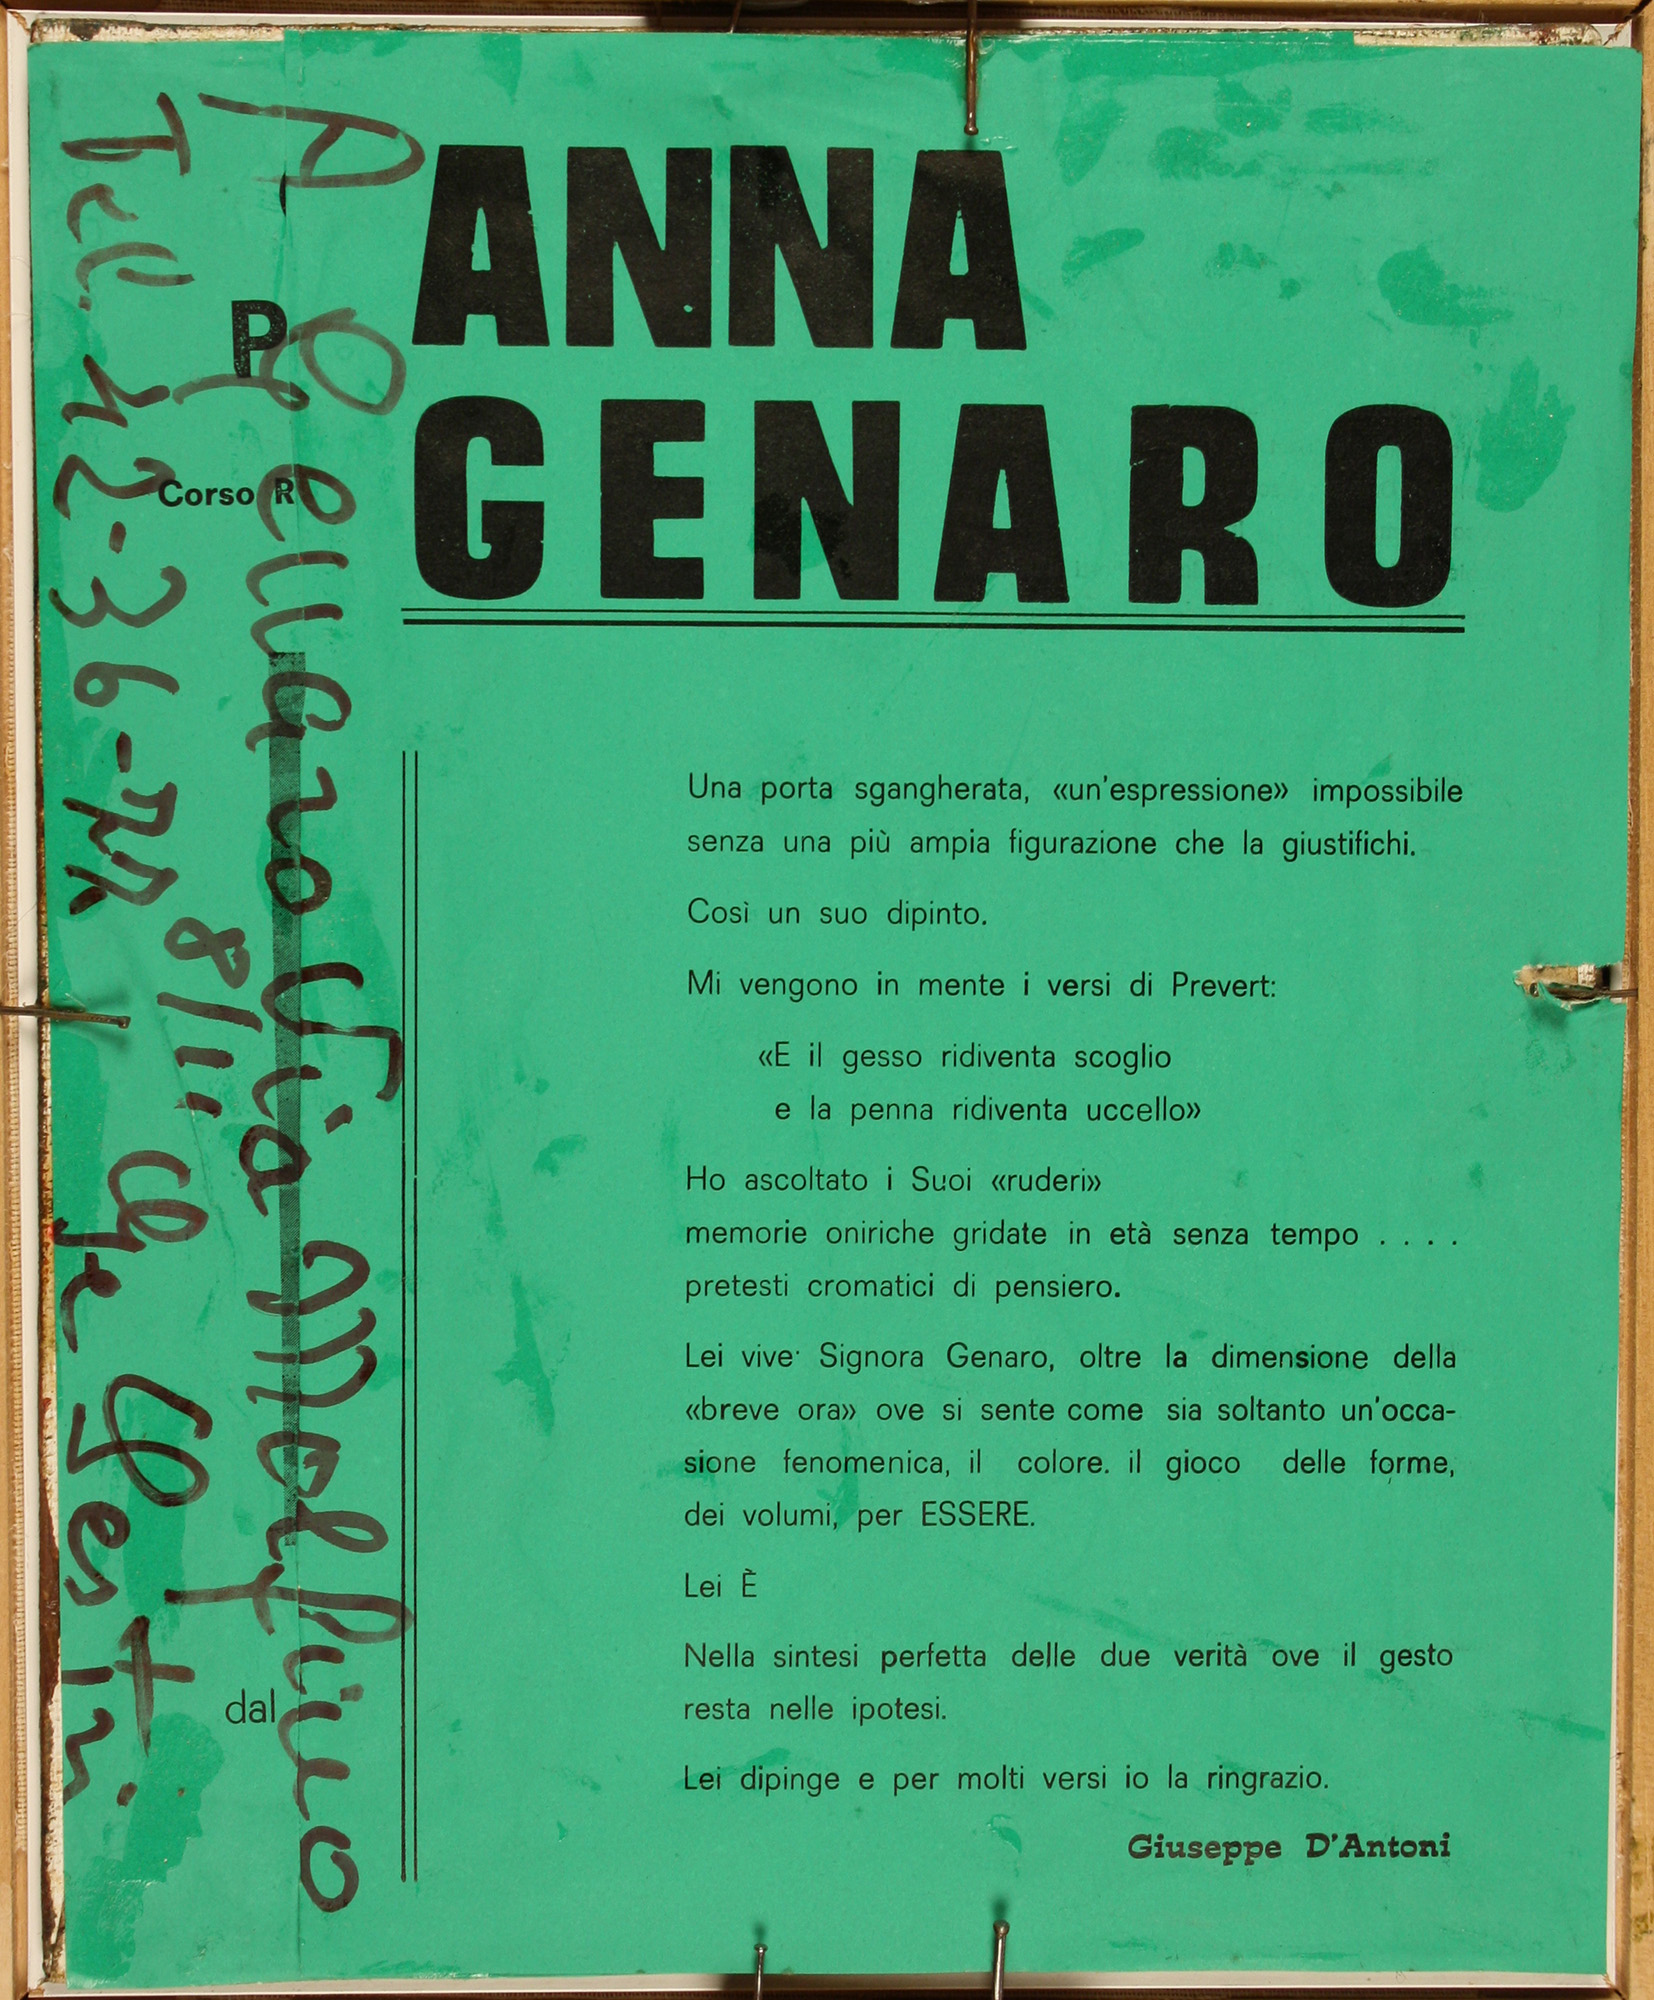 ANNA
GENARO
P
Corso R
dal
Una porta sgangherata, «un'espressione» impossibile
senza una più ampia figurazione che la giustifichi.
Così un suo dipinto.
Mi vengono in mente i versi di Prevert:
«E il gesso ridiventa scoglio
e la penna ridiventa uccello»
Ho ascoltato i Suoi «ruderi»
memorie oniriche gridate in età senza tempo . . . .
pretesti cromatici di pensiero.
Lei vive· Signora Genaro, oltre la dimensione della
«breve ora» ove si sente come sia soltanto un'occa-
sione fenomenica, il colore. il gioco delle forme,
dei volumi, per ESSERE.
Lei È
Nella sintesi perfetta delle due verità ove il gesto
resta nelle ipotesi.
Lei dipinge e per molti versi io la ringrazio.
Giuseppe D'Antoni
A. Pellaro Via
Tell. 42-36-